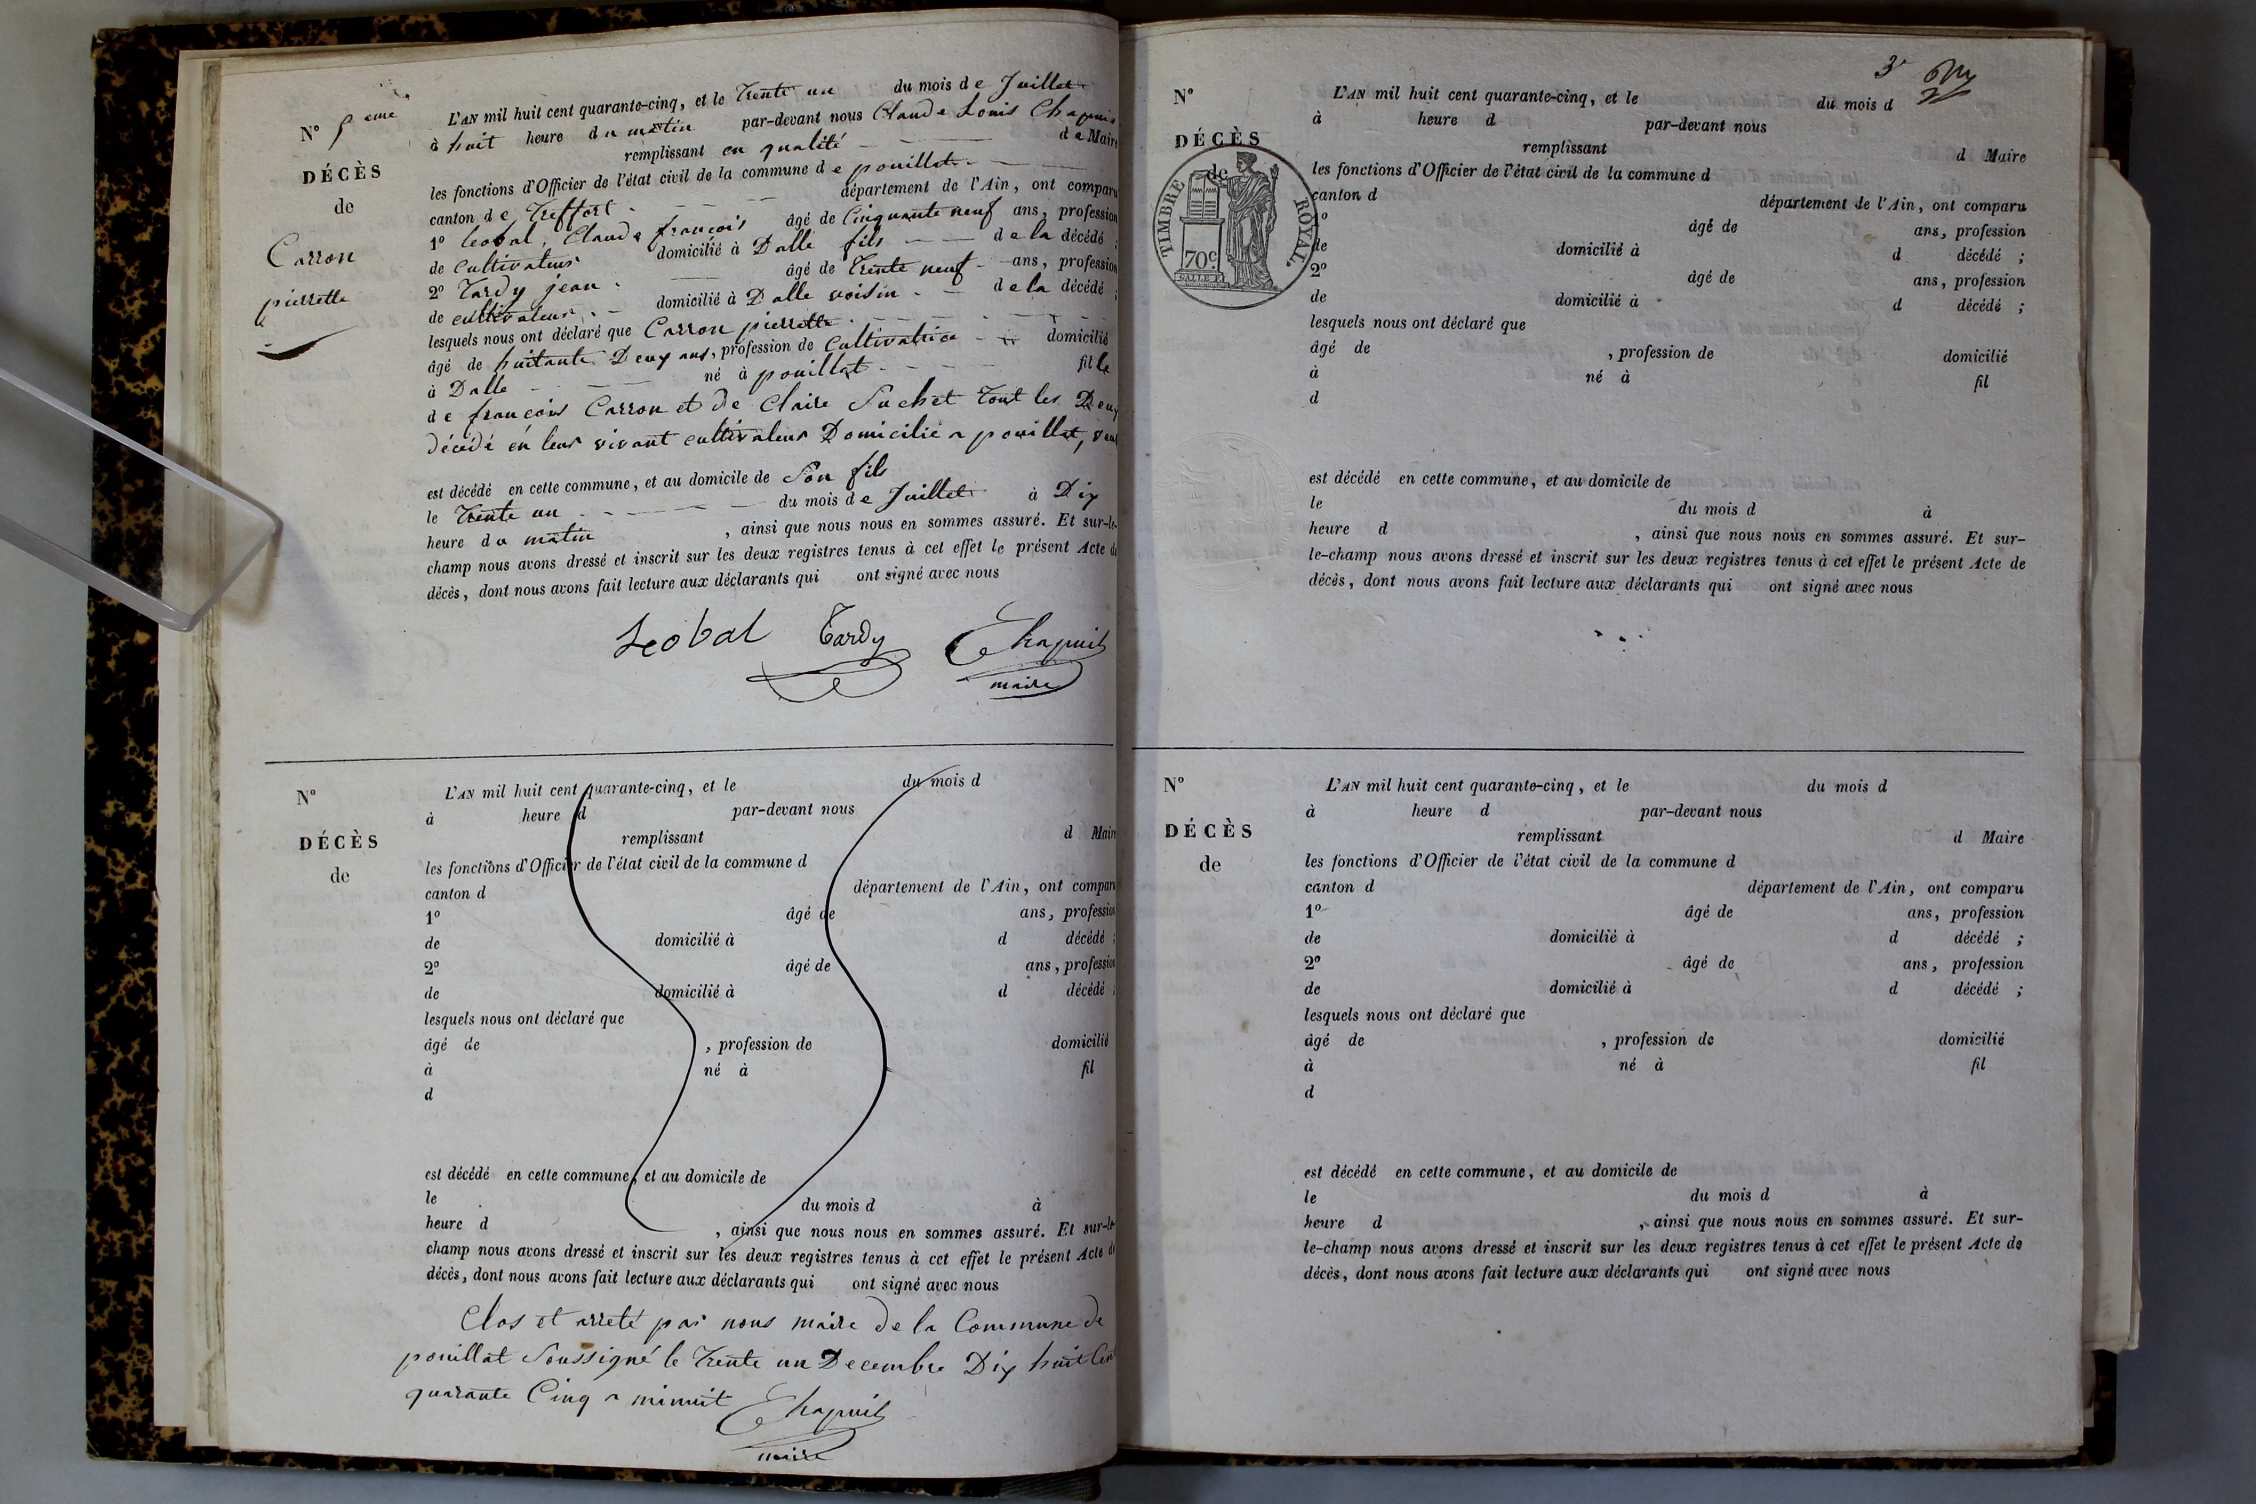 N° 5 eme
DÉCÈS
de
Carron
pierrette
L'AN mil huit cent quarante-cinq, et le Trente un du mois de Juillet
à huit heure du matin par-devant nous Claude Louis Chapuis
remplissant en qualité de Maire
les fonctions d'Officier de l'état civil de la commune de pouillat
canton de Treffort département de l'Ain, ont comparu
1° Leobal, Claude françois âgé de Cinquante neuf ans, profession
de Cultivateur domicilié à Dalle fils de la décédé ;
2° Tardy jean âgé de Trente neuf ans, profession
de cultivateur domicilié à Dalle voisin de la décédé ;
lesquels nous ont déclaré que Carron pierrette
âgé de huitante Deux ans, profession de Cultivatrice domicilié
à Dalle né à pouillat fille
de françois Carron et de Claire Suchet Tout les Deux
décédé en leur vivant cultivateur Domicilié a pouillat,
est décédé en cette commune, et au domicile de Son fils
le Trente un du mois de Juillet à Dix
heure du matin , ainsi que nous nous en sommes assuré. Et sur-le-
champ nous avons dressé et inscrit sur les deux registres tenus à cet effet le présent Acte de
décès, dont nous avons fait lecture aux déclarants qui ont signé avec nous
Leobal Tardy Chapuis
maire
N°
DÉCÈS
de
L'AN mil huit cent quarante-cinq, et le du mois d
à heure d par-devant nous
remplissant d Maire
les fonctions d'Officier de l'état civil de la commune d
canton d département de l'Ain, ont comparu
1° âgé de ans, profession
de domicilié à d décédé ;
2° âgé de ans, profession
de domicilié à d décédé ;
lesquels nous ont déclaré que
âgé de , profession de domicilié
à né à fil
d
est décédé en cette commune, et au domicile de
le du mois d à
heure d , ainsi que nous nous en sommes assuré. Et sur-le-
champ nous avons dressé et inscrit sur les deux registres tenus à cet effet le présent Acte de
décès, dont nous avons fait lecture aux déclarants qui ont signé avec nous
Clos et arreté par nous maire de la Commune de
pouillat Soussigné le Trente un Decembre Dix huit Cent
quarante Cinq a minuit Chapuis
maire
3
N°
DÉCÈS
de
TIMBRE ROYAL
70c.
L'AN mil huit cent quarante-cinq, et le du mois d
à heure d par-devant nous
remplissant d Maire
les fonctions d'Officier de l'état civil de la commune d
canton d département de l'Ain, ont comparu
1° âgé de ans, profession
de domicilié à d décédé ;
2° âgé de ans, profession
de domicilié à d décédé ;
lesquels nous ont déclaré que
âgé de , profession de domicilié
à né à fil
d
est décédé en cette commune, et au domicile de
le du mois d à
heure d , ainsi que nous nous en sommes assuré. Et sur-
le-champ nous avons dressé et inscrit sur les deux registres tenus à cet effet le présent Acte de
décès, dont nous avons fait lecture aux déclarants qui ont signé avec nous
N°
DÉCÈS
de
L'AN mil huit cent quarante-cinq, et le du mois d
à heure d par-devant nous
remplissant d Maire
les fonctions d'Officier de l'état civil de la commune d
canton d département de l'Ain, ont comparu
1° âgé de ans, profession
de domicilié à d décédé ;
2° âgé de ans, profession
de domicilié à d décédé ;
lesquels nous ont déclaré que
âgé de , profession de domicilié
à né à fil
d
est décédé en cette commune, et au domicile de
le du mois d à
heure d , ainsi que nous nous en sommes assuré. Et sur-
le-champ nous avons dressé et inscrit sur les deux registres tenus à cet effet le présent Acte de
décès, dont nous avons fait lecture aux déclarants qui ont signé avec nous